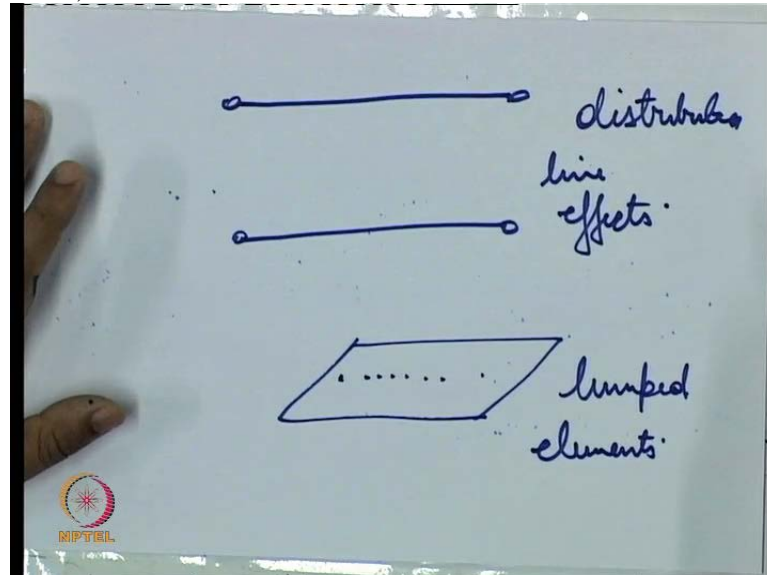 distributed
line
effects.
lumped
elements.
NPTEL